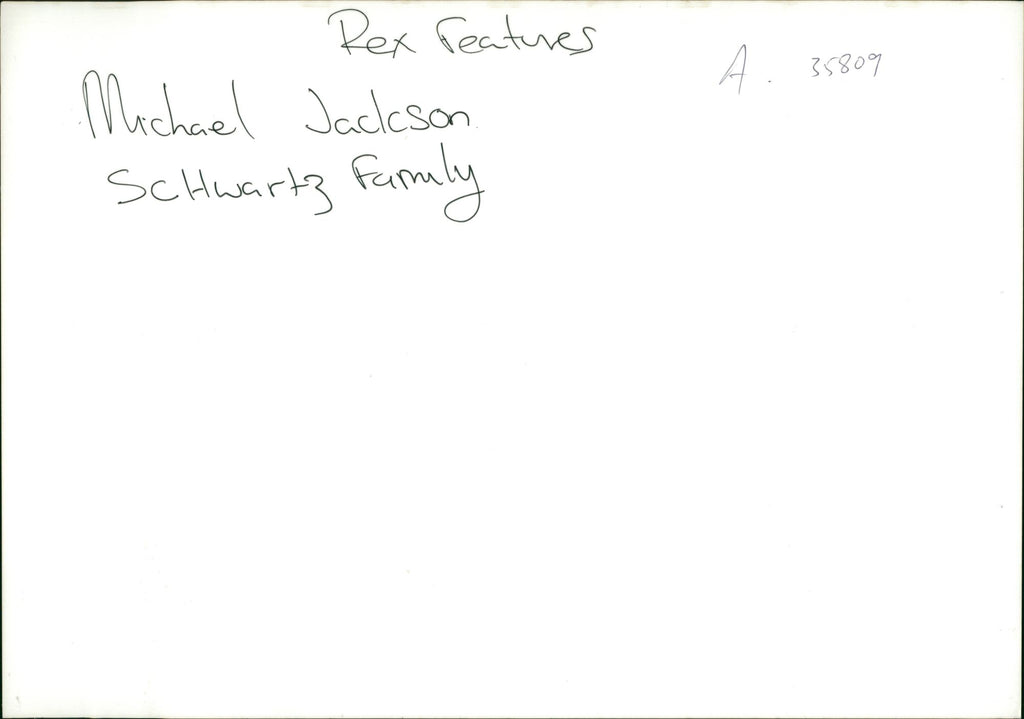 Rex Features
A. 35809
Michael Jackson
SCHwartz Family